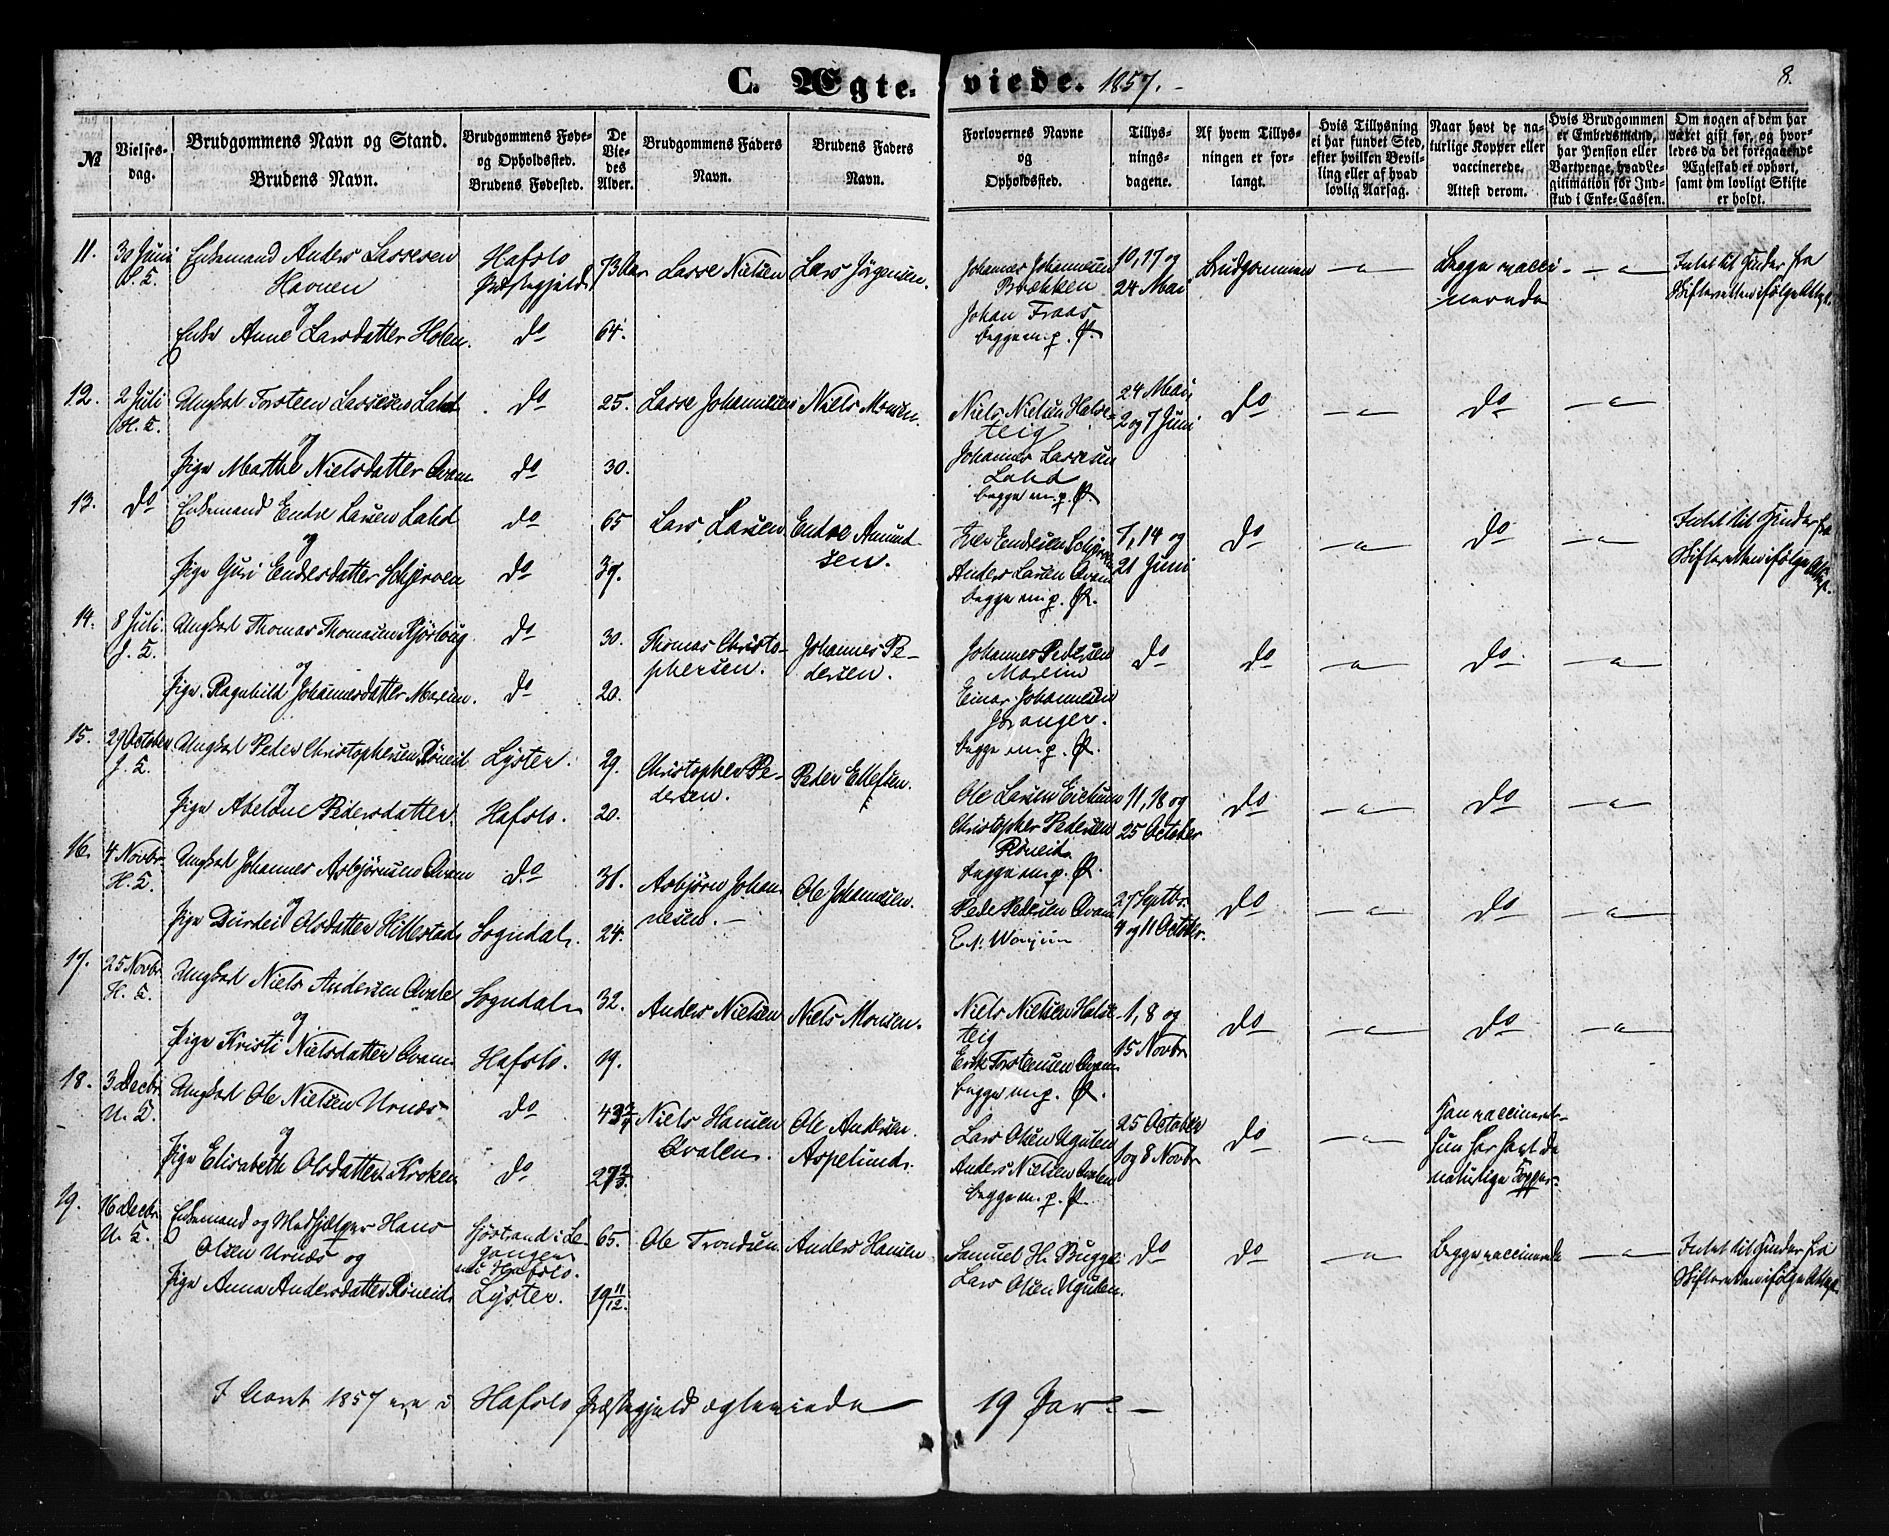 C. Ægteviede. 1857. 8.
№ Vielses-dag. Brudgommens Navn og Stand. Brudens Navn. Brudgommens Føde- og Opholdssted. Brudens Fødested. De Viedes Alder. Brudgommens Faders Navn. Brudens Faders Navn. Forlovernes Navne og Opholdssted. Tillysningsdagene. Af hvem Tillysningen er forlangt. Hvis Tillysning ei har fundet Sted, efter hvilken Bevilling eller af hvad lovlig Aarsag. Naar havt de naturlige Kopper eller vaccinerede. Attest derom. Hvis Brudgommen er Embedsmand, har Pension eller Vartpenge, hvad Legitimation for Indskud i Enke-Cassen. Om nogen af dem har været gift før, og hvorledes da det foregaaende Ægteskab er ophørt, samt om lovligt Skifte er holdt.
11. 30 Juni Enkemand Anders Lassesen Hafslo 73 Aar Lasse Nielsen Lars Jørgensen. Johannes Johannesen 10, 17 og Brudgommen — Begge vacci- — Intet til Hinder fra
Havnen Præstegjeld Brækken 24 Mai nerede Skifteretten ifølge Attest.
og Johan Fraas
Enke Anne Larsdatter Holen. do 64. begge m. p. P.
12. 2 Juli Ungkarl Torsteen Lassesen Lahd do 25. Lasse Johannesen Niels Monsen. Niels Nielsen Halse- 24 Mai, do — do —
H. K. og teig 2 og 7 Juni
Pige Marthe Nielsdatter Qvam do 30. Johannes Lassesen
Lahd
begge m. p. P.
13. do Enkemand Endre Larsen Lahd do 65 Lars Larsen Endre Amund- Endresen Schjerven 7, 14 og do — do — Intet til Hinder fra
og sen. Anders Larsen Qvam 21 Juni Skifteretten ifølge Attest.
Pige Guri Endresdatter Schjerven do 37. begge m. p. P.
14. 8 Juli Ungkarl Thomas Thomasen do 30. Thomas Christo- Johannes Pe- Johannes Pedersen do do — do —
og phersen. dersen. Marein
Pige Ragnhild Johannesdatter Marein. do 20. Einar Johannesen
Joranger.
begge m. p. P.
15. 29 October Ungkarl Peder Christophersen Røneid Lyster. 29. Christopher Pe- Peder Ellefsen. Ole Larsen Eickum 11, 18 og do — do —
og dersen. Christopher Pedersen 25 October
Pige Abelone Pedersdatter Hafslo. 20. Røneid
begge m. p. P.
16. 4 Novbr. Ungkarl Johannes Asbjørnsen Qvam do 31. Asbjørn Johan- Ole Johannesen. Peder Pedersen Qvam 27 Septbr. do — do —
H. K. og nesen. — 4 og 11 October.
Pige Durdei Olsdatter Hillestad Sogndal. 24.
17. 25 Novbr Ungkarl Niels Andersen Qvale Sogndal 32. Anders Nielsen Niels Monsen. Niels Nielsen Halse- 1, 8 og do — do —
H. K. og teig 15 Novbr
Pige Kristi Nielsdatter Qvam Hafslo. 19. Erik Torstensen Qvam
begge m. p. P.
18. 3 Decbr. Ungkarl Ole Nielsen Urnæs do 43 Niels Hansen Ole Andersen Lars Olsen Ugulen 25 October do — Han vaccineret
U. K. og Qvalen. Aspelund. Anders Nielsen Qvalen 1 og 8 Novbr hun har havt de
Pige Elisabeth Olsdatter Kroken do 27 begge m. p. P. naturlige Kopper.
19. 16 Decbr. Enkemand og Medhjælper Hans 65. Ole Trondsen Anders Hansen Samuel H. Bugge do do — Begge vaccinerede — Intet til Hinder fra
U. K. Olsen Urnæs og nu Hafslo. Lars Olsen Ugulen. Skifteretten ifølge Attest.
Pige Anna Andersdatter Røneid Lyster. 19 11/12.
I Aaret 1857 ere i Hafslo Præstegjeld ægteviede 19 Par. —